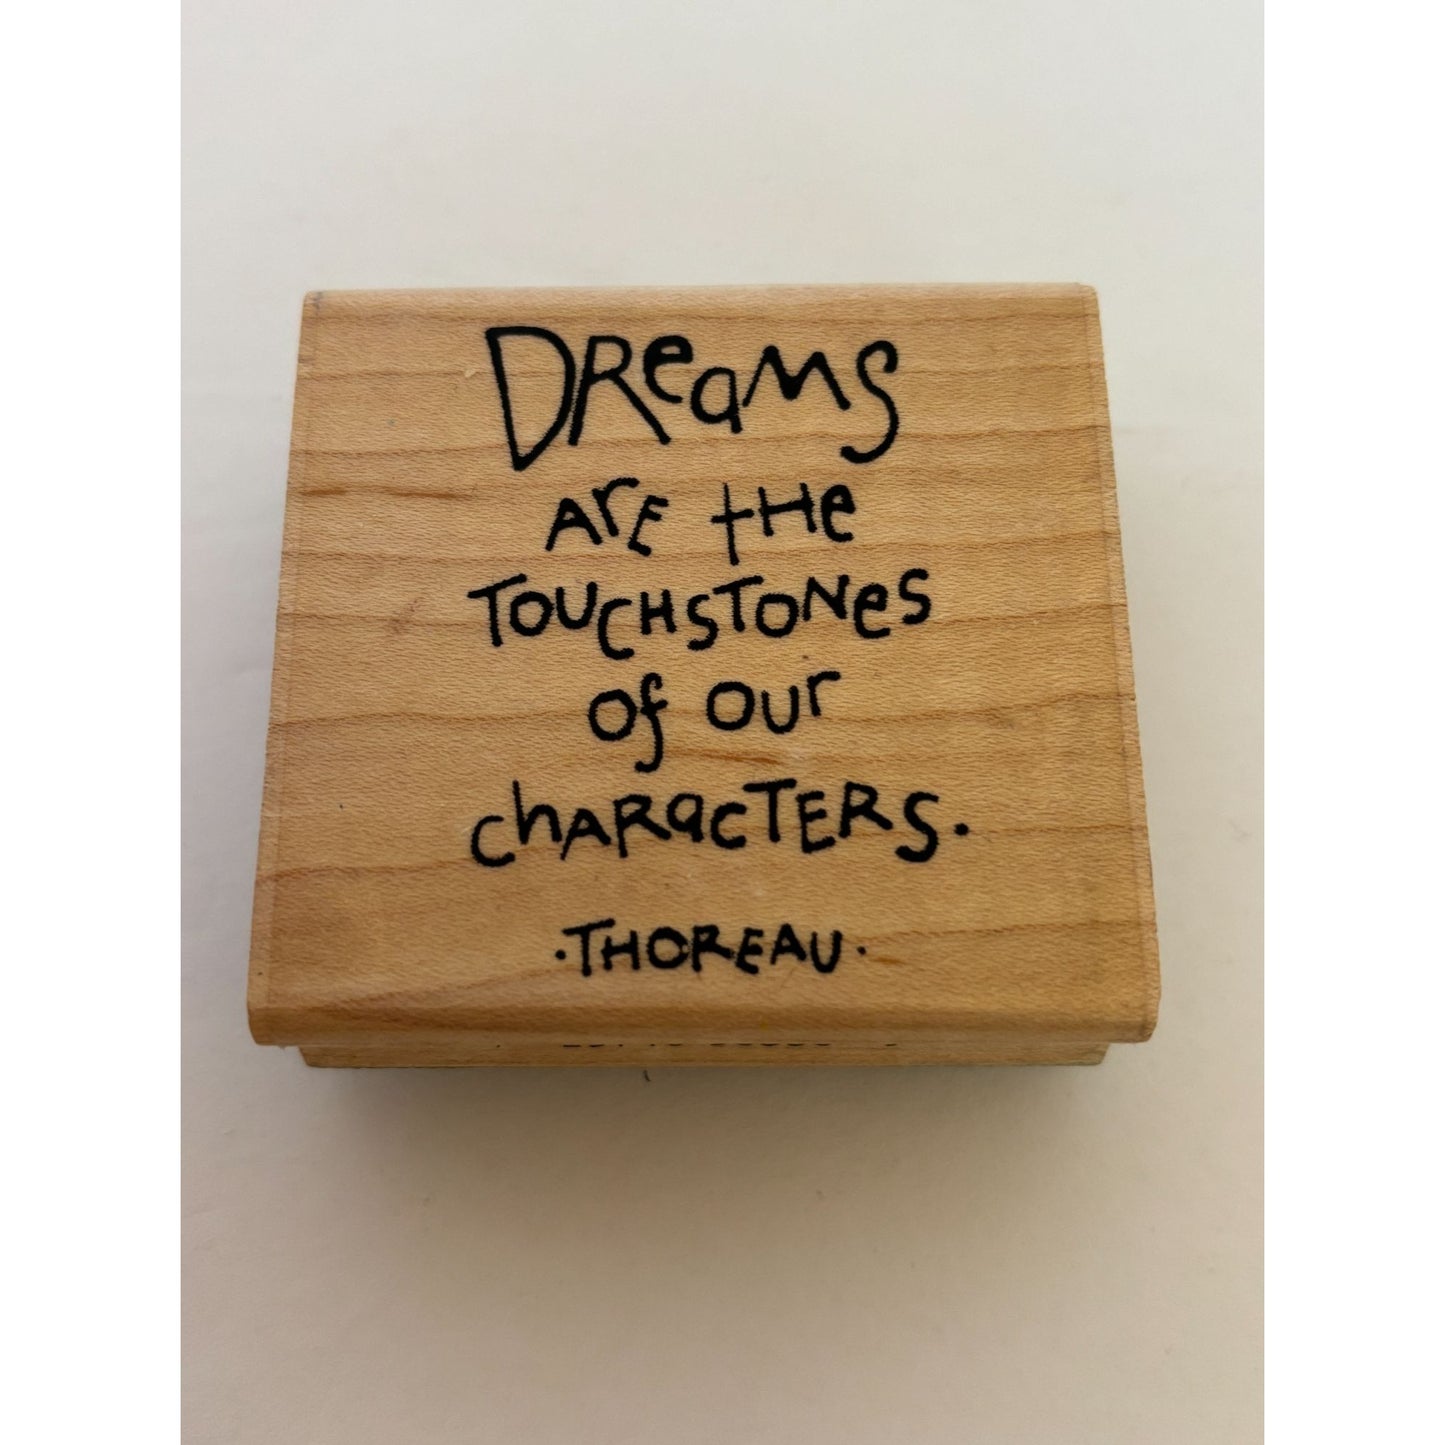 DReaMS
Are the
TOUCHSTONes
of our
chARacTERS.
·THOREAU·